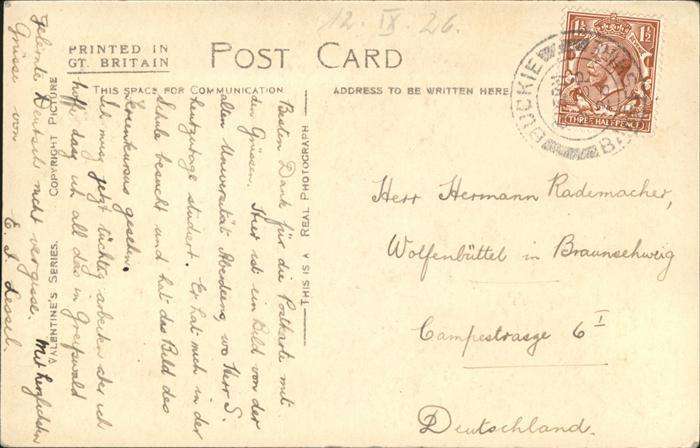 12. IX. 26.
PRINTED IN
GT. BRITAIN
POST CARD
THIS SPACE FOR COMMUNICATION
ADDRESS TO BE WRITTEN HERE
1½ 1½
THREE HALFPENCE
BUCKIE
Herr Hermann Rademacher,
Wolfenbüttel in Braunschweig
Campestrasze 6 I
Deutschland.
THIS IS A REAL PHOTOGRAPH
Besten Dank für die Postkarte mit
den Grüssen. Hier ist ein Bild von der
alten Universität Aberdeens, wo Herr S.
heutzutage studiert. Er hat mich in der
Schule besucht und hat das Bild des
Ferienkursus gesehn.
Ich muss jetzt tüchtig arbeiten aber ich
hoffe dasz ich all das in Greifswald
gelernte Deutsch nicht vergisse. Mit herzlichsten
Grüsse von
E. J. Lessel.
VALENTINE'S SERIES. COPYRIGHT PICTURE